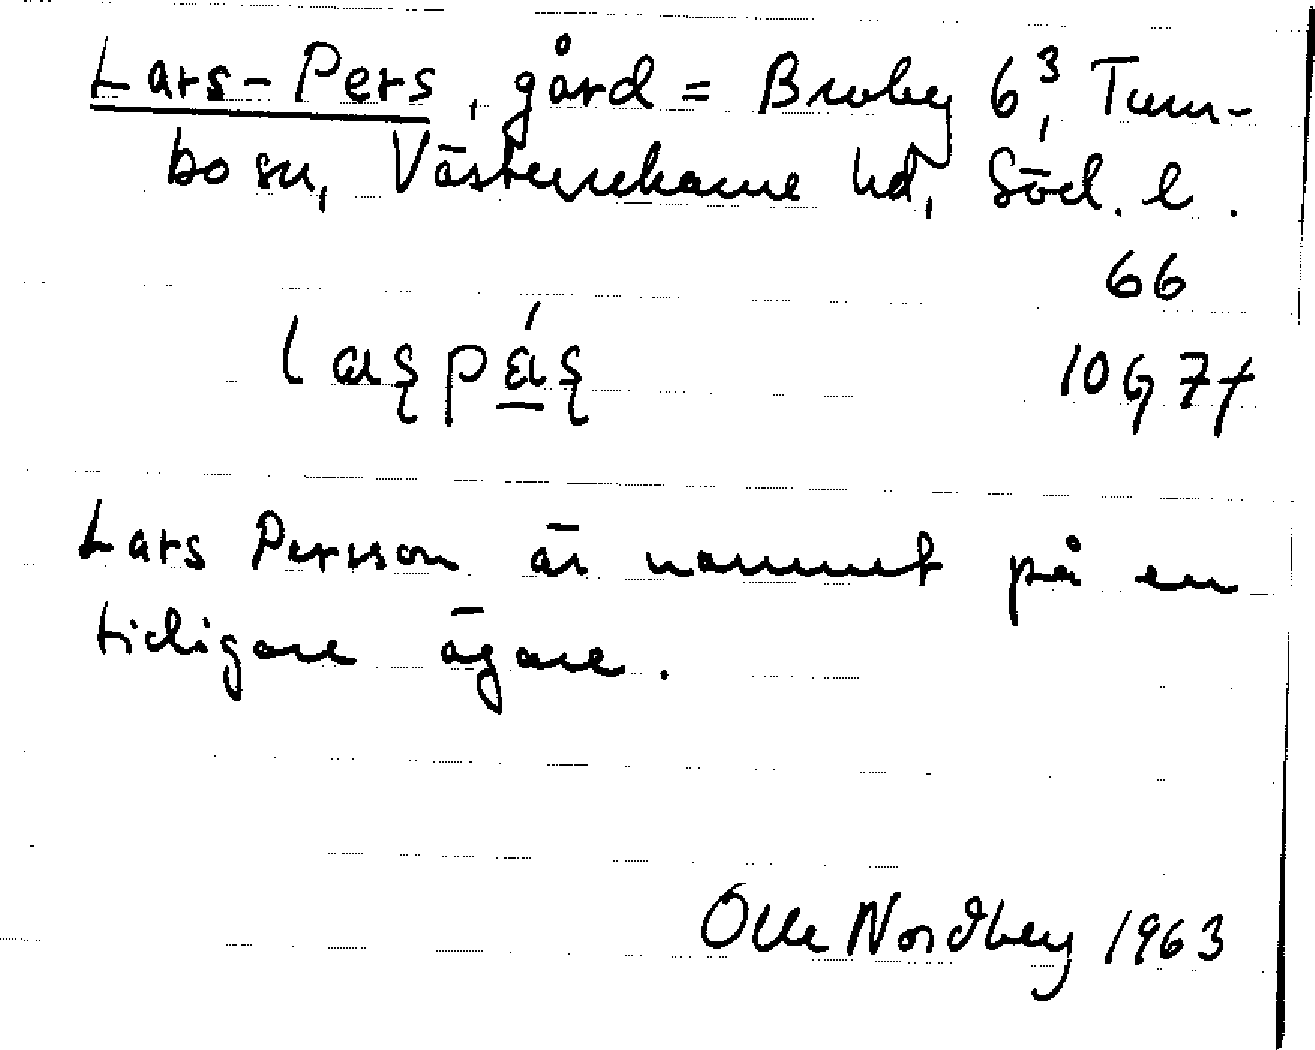 Lars-Pers, gård = Broby 6³, Tum-
bo sn, Västerrekarne hd, Söd. l.
66
laşpáş 10G 7f
Lars Persson är namnet på en
tidigare ägare.
Olle Nordby 1963